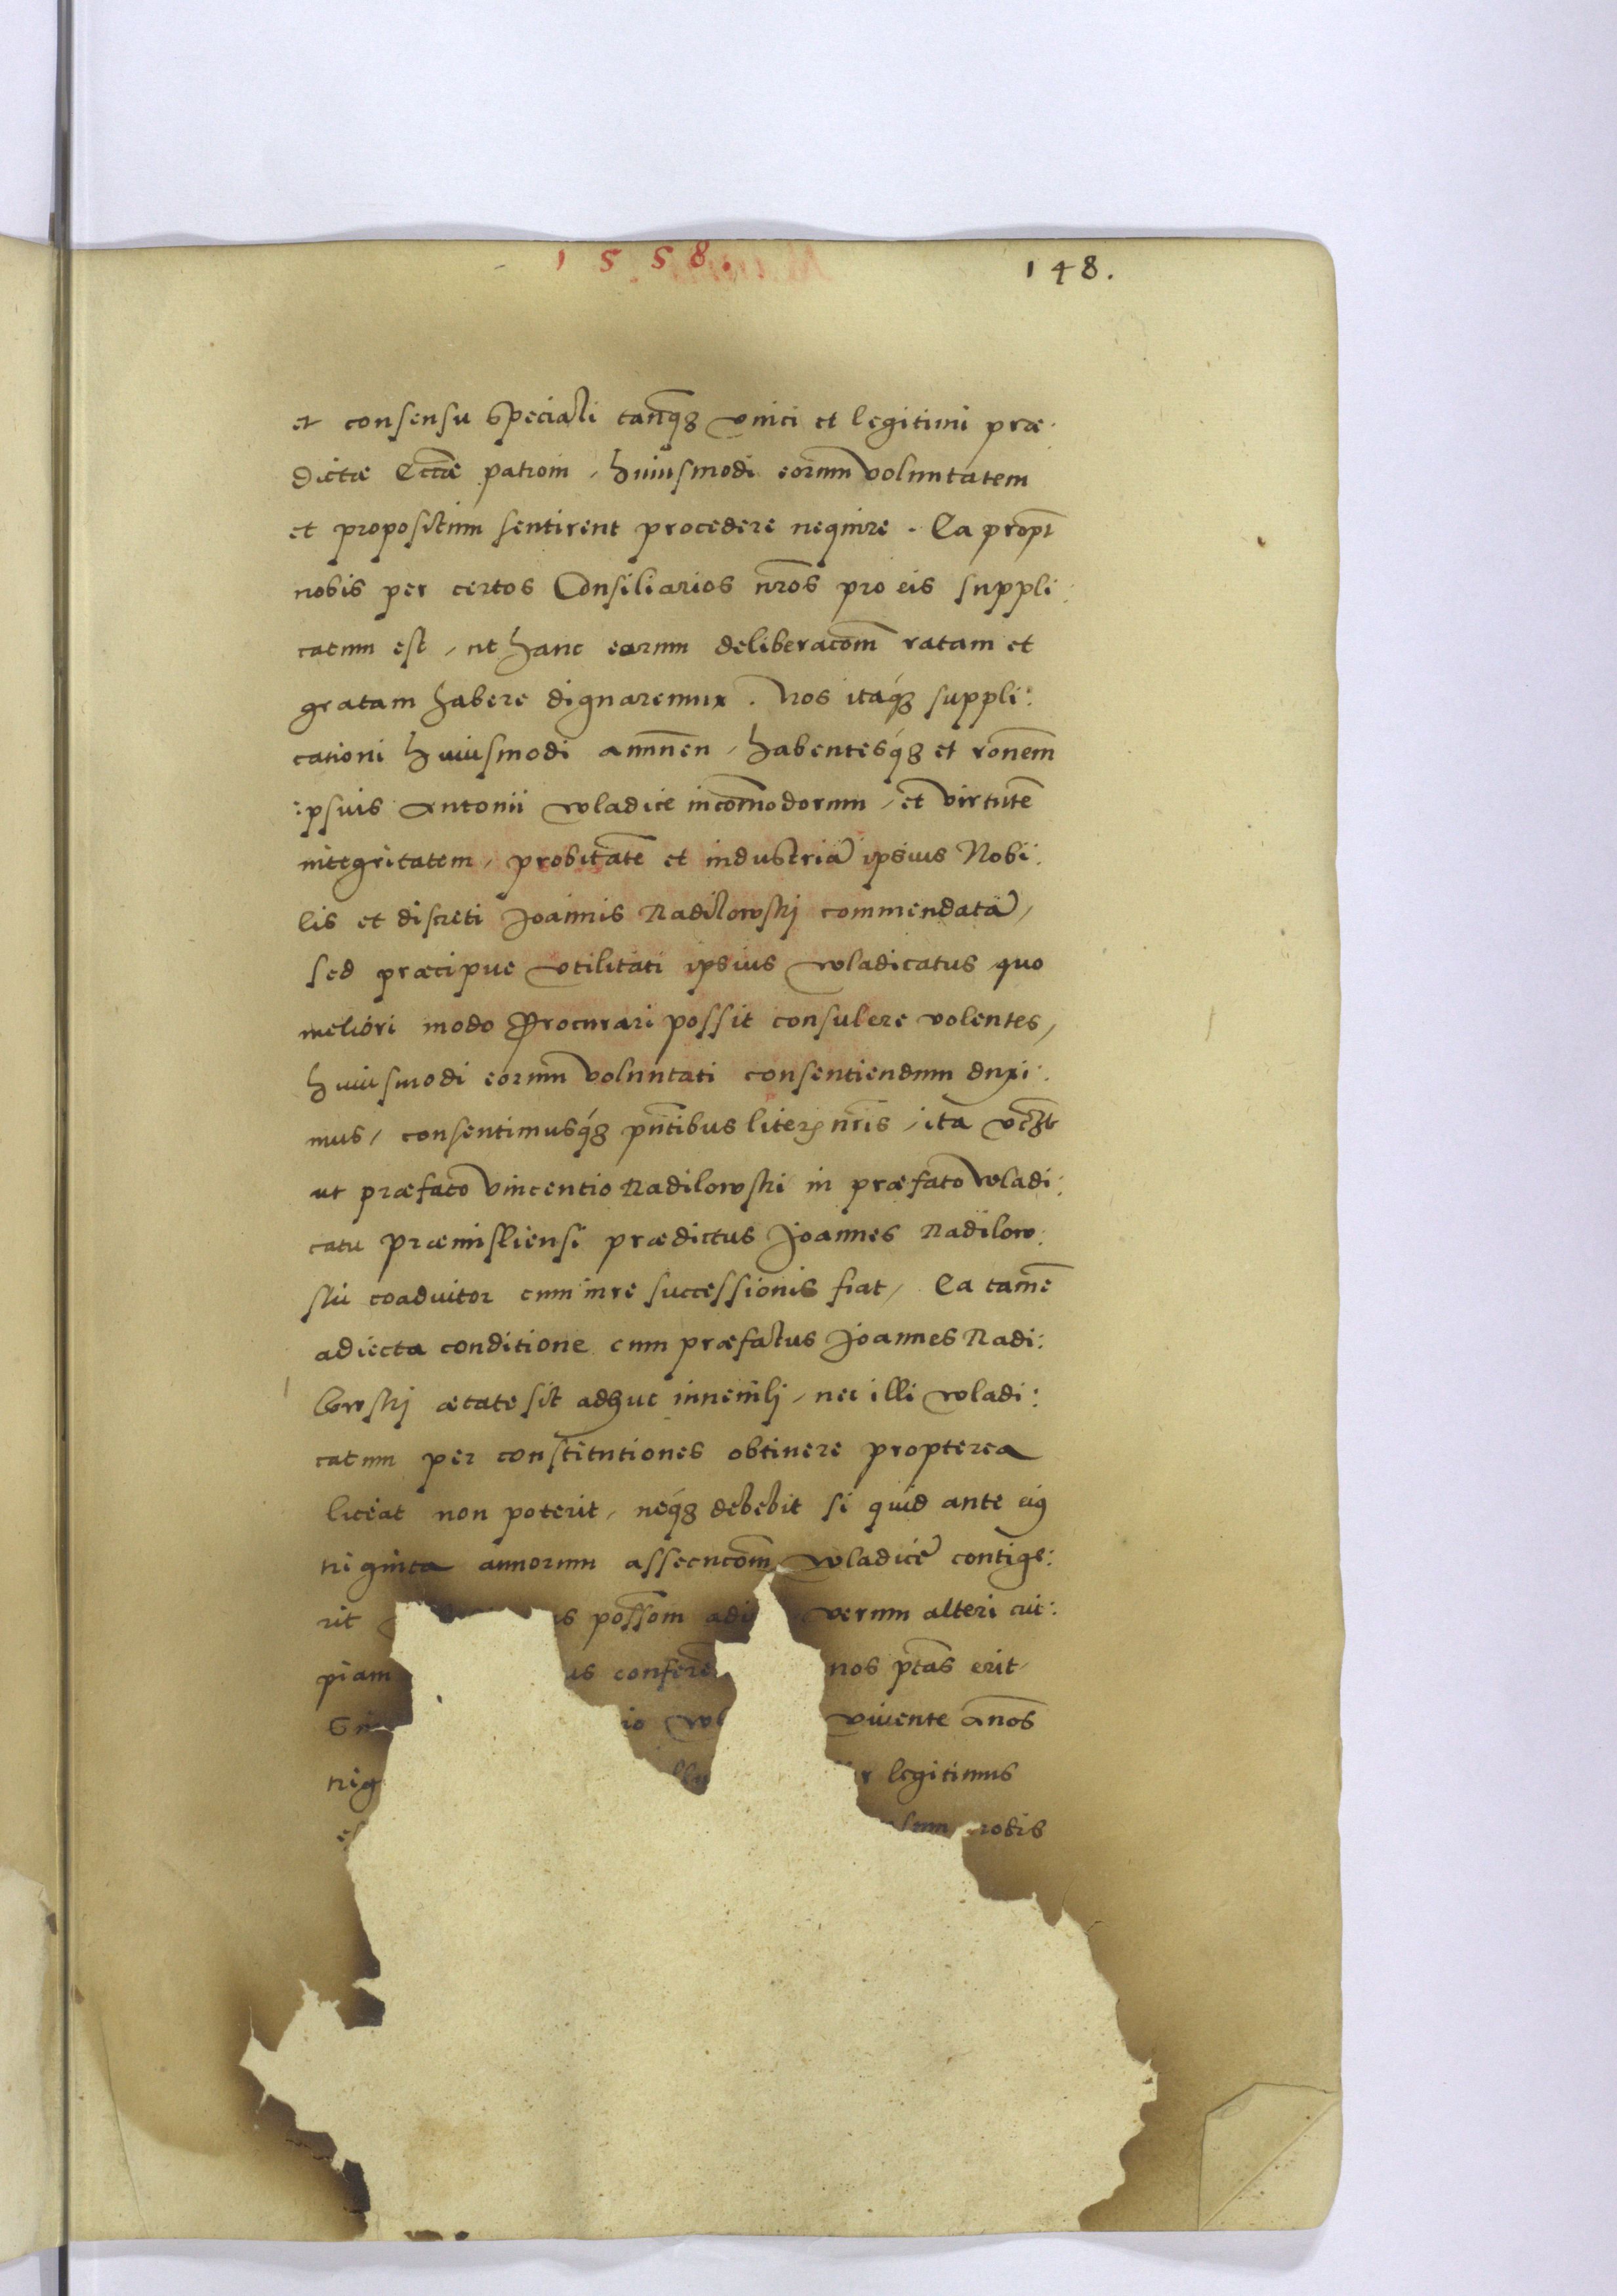 1558.
148.
et consensu speciali tanq̃ʒ vnici et legitimi præ:
dictæ Eccłæ patroni, huiusmodi eorum voluntatem
et propositum sentirent procedere nequire. Ea propt̃
nobis per certos Consiliarios nr̃os pro eis suppli:
catum est, ut hanc earum deliberacõm ratam et
gratam habere dignaremur. Nos itaq́ʒ suppli:
cationi huiusmodi annuen, habentesq́ʒ et rõnem
ipsius Antonii wladice incom̃odorum, et virtutẽ
integritatem, probitatẽ et industriã ipsius Nobi:
lis et discreti Joannis Radilowskj commendatã,
sed præcipue vtilitati ipsius wladicatus quo
meliori modo procurari possit consulere volentes,
huiusmodi eorum voluntati consentiendum duxi:
mus, consentimusq́ʒ pñtibus literis nr̃is, ita
ut præfato Vincentio Radilowski in præfato wladi:
catu Præmisliensi prædictus Joannes Radilow:
ski coadiutor cum iure successionis fiat, Ea tamẽ
adiecta conditione cum præfatus Joannes Radi:
lowskj ætate sit adhuc iuuenilj, nec illi wladi:
catum per constitutiones obtinere propterea
liceat non poterit, neq́ʒ debebit si quid ante eiꝯ
triginta annorum assecucõm wladicẽ contige:
rit is possom adi verum alteri cui:
piam us conferẽ nos ptãs erit
io wl viuente annos
trig legitimus
nobis